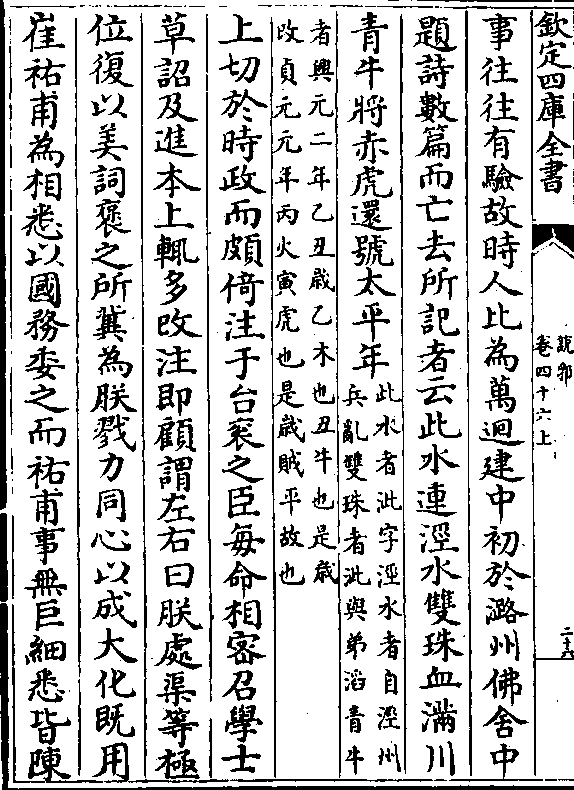 欽定四庫全書
說郛
卷四十六上
二十六
事往往有驗故時人比為萬迴建中初於潞州佛舍中
題詩數篇而亡去所記者云此水連涇水雙珠血滿川
青牛將赤虎還號太平年
此水者泚字涇水者自涇州
兵亂雙珠者泚與弟滔青牛
者興元二年乙丑歲乙木也丑牛也是歲
改貞元元年丙火寅虎也是歲賊平故也
上切於時政而頗倚注于台衮之臣每命相密召學士
草詔及進本上輒多改注即顧謂左右曰朕處渠等極
位復以美詞褒之所冀為朕戮力同心以成大化既用
崔祐甫為相悉以國務委之而祐甫事無巨細悉皆陳